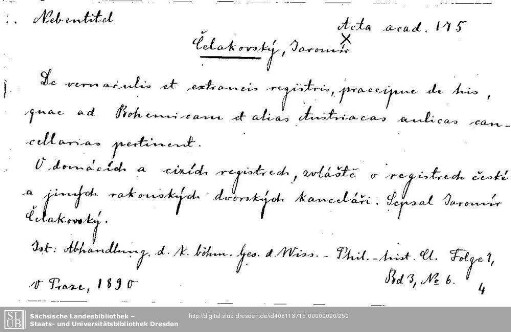 Nebentitel
Acta acad. 175
Čelakovský, Jaromír
De vernaculis et extraneis registris, praecipue de his,
quae ad Bohemicam et alias Austriacas aulicas can-
cellarias pertinent.
O domácích a cizích registrech, zvláště o registrech české
a jiných rakouských dvorských kanceláří. Sepsal Jaromír
Čelakovský.
Ist: Abhandlung. d. k. böhm. Ges. d. Wiss. - Phil.-hist. Cl. Folge 7,
Bd 3, No 6.
v Praze, 1890
4
Sächsische Landesbibliothek –
Staats- und Universitätsbibliothek Dresden